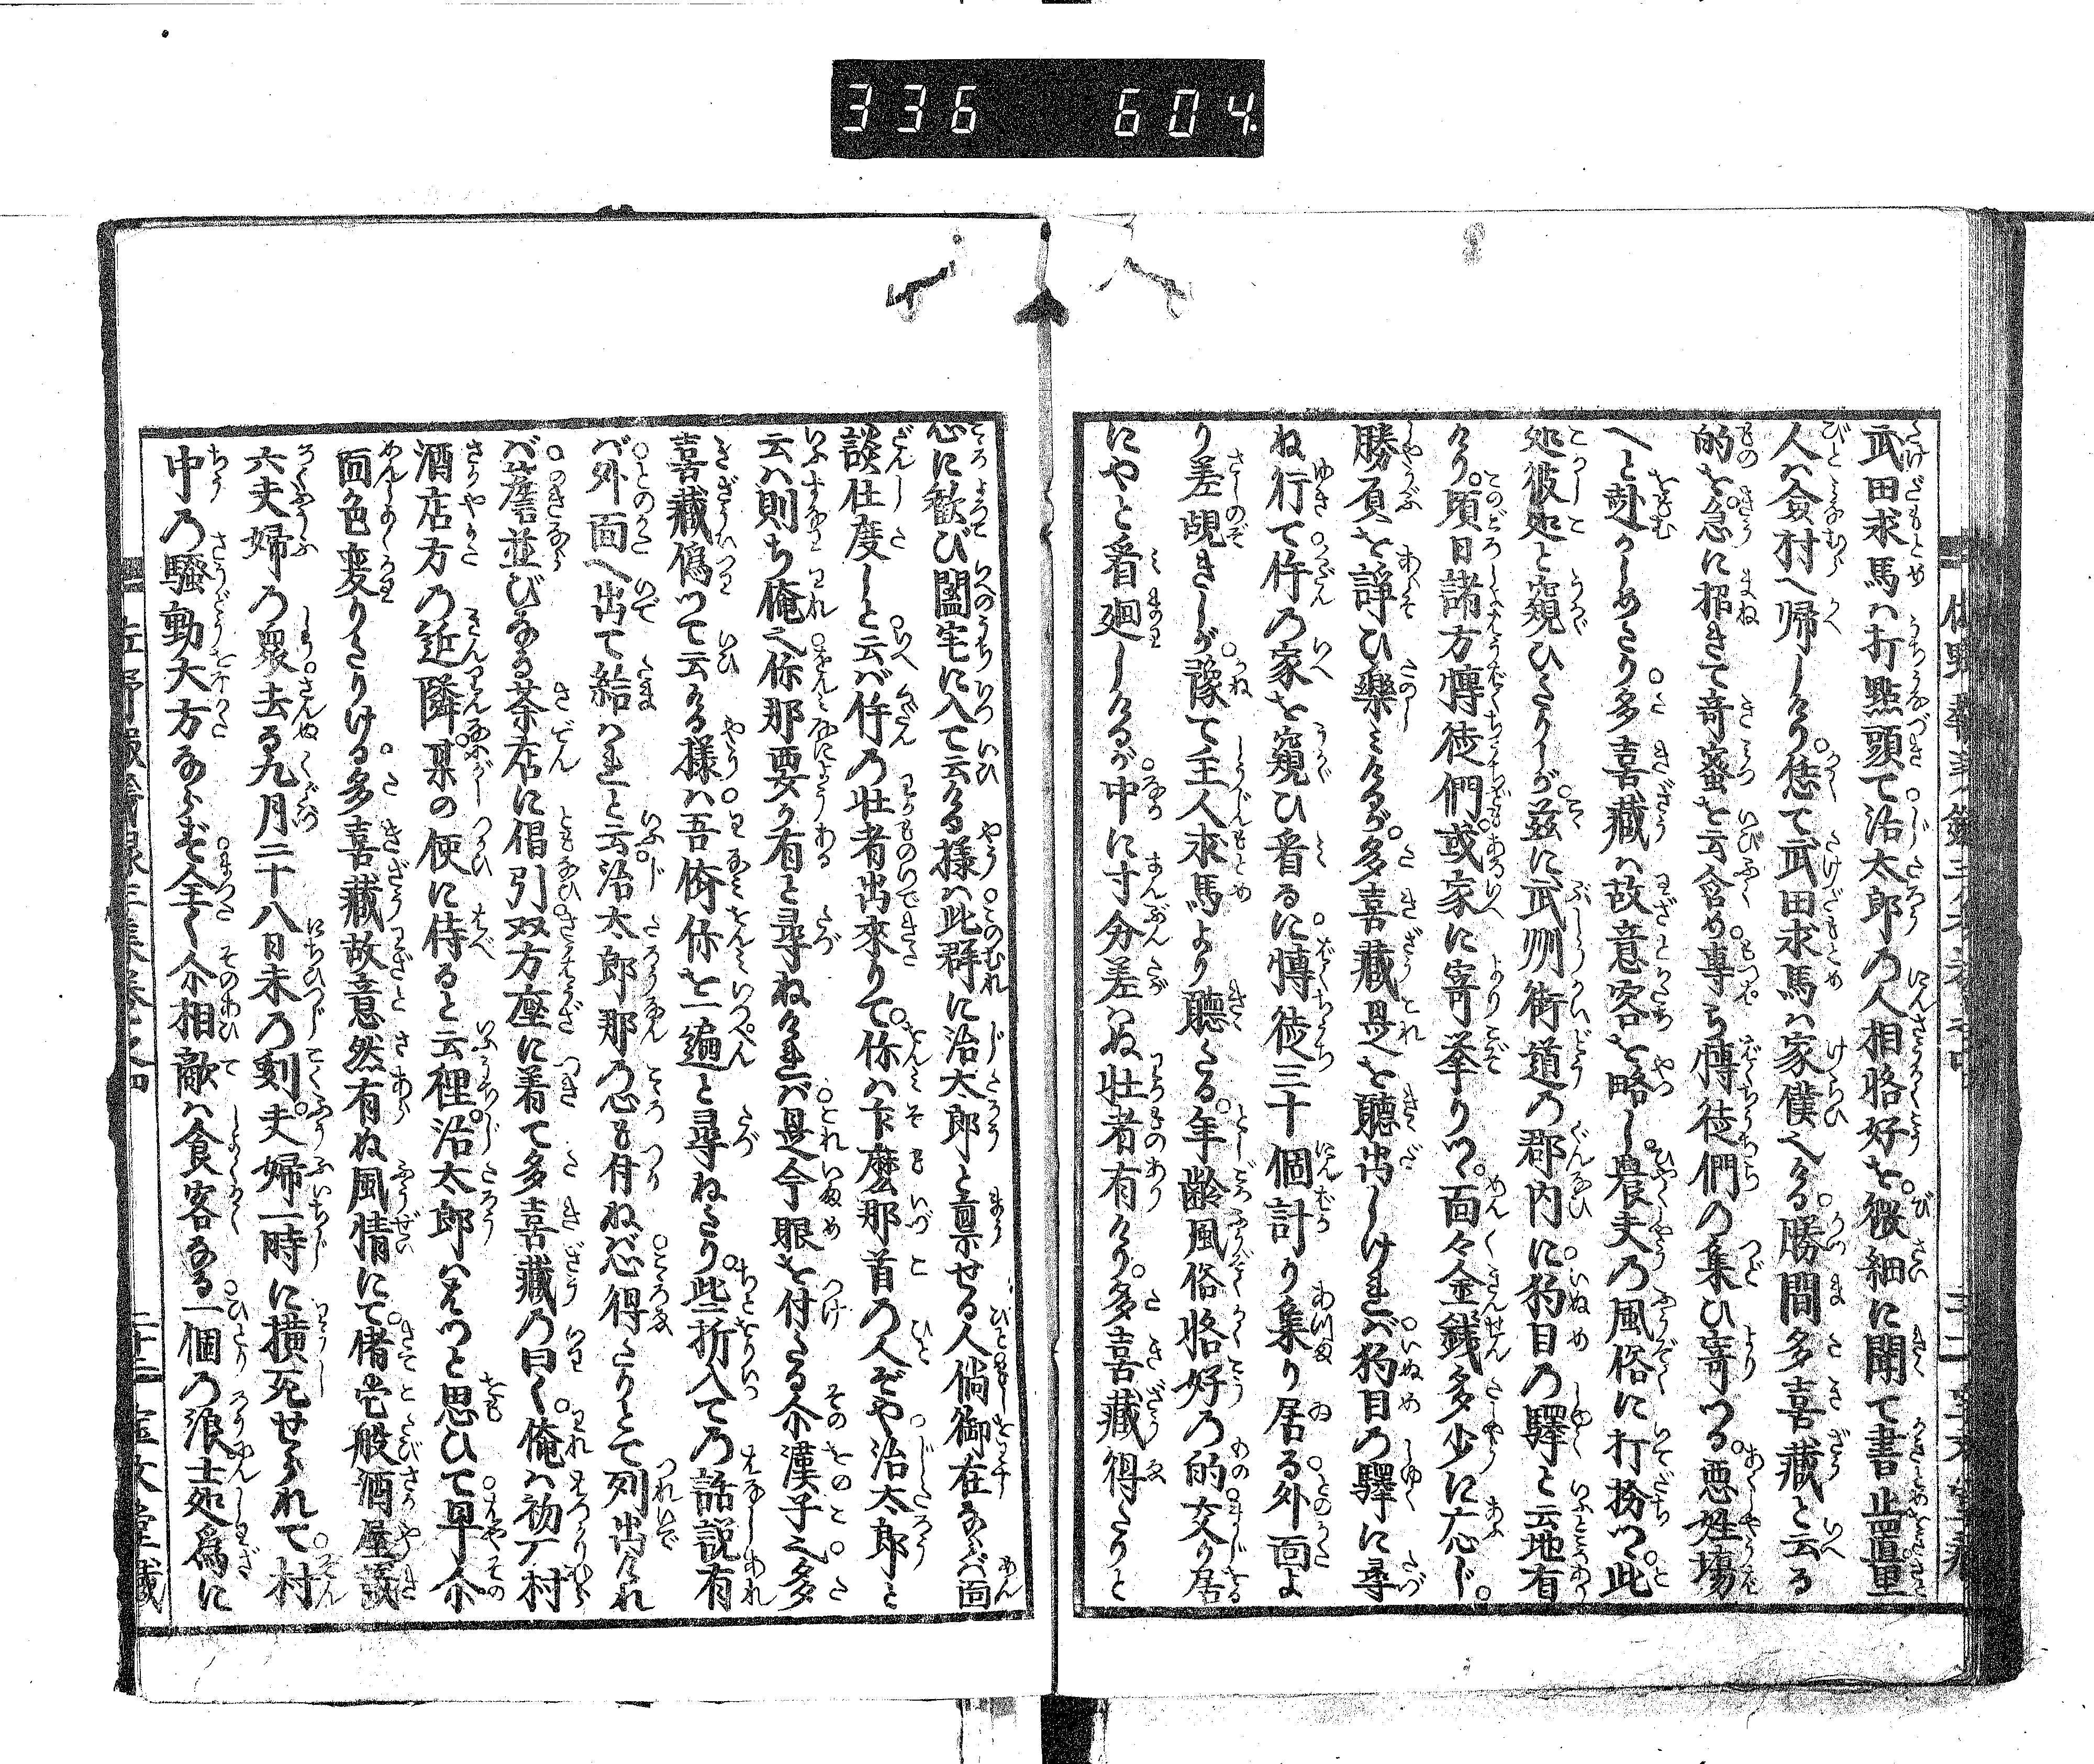 336 604.
武田求馬ハ打點頭て治太郎乃人相恪好を。微細に聞て書止置
人ハ僉村へ帰しける。恁て武田求馬ハ家僕なる。勝間多喜藏と云る
的を。急に招きて竒蜜を云含め専ら慱徒們の集ひ寄つる。悪姓場
へと赴かしめたり。多喜藏ハ故意客を略し。農夫乃風俗に打扮つ。此
処彼処と窺ひたりしが。茲に武州街道乃郡内に。狗目乃驛と云地有
けり。頃日諸方慱徒們。或家に寄挙りつ。面々金銭多少に応じ。
勝負を諍ひ樂みけるが。多喜藏是を聽出しけれバ。狗目乃驛に尋
ね行て。件乃家を窺ひ看るに。慱徒三十個計り集り居る。外面よ
り差覗きしが。豫て主人求馬より聽たる。年齢風俗恪好乃的交り居
にやと看廻しけるが。中に寸分差ハぬ壮者有けり。多喜藏得たりと
心に歓び闔宅に入て云ける様ハ。此群に治太郎と禀せる人倘御在なら︀バ面
談仕度しと云バ。件乃壮者出來りて。你ハ什麼那首乃人ぞや治太郎と
云ハ則ち俺也。你那要か有と尋ねけれバ。是今眼を付たる。介漢子也。多
喜藏僞つて云ける様ハ。吾儕你を一遍と尋ねたり。些折入て乃話説有
バ。外面へ出て給ハれと云。治太郎那乃心も付ねバ。心得たりとて列出けれ
バ。簷並びなる茶店に倡引。双方座に着て多喜藏乃曰く。俺ハ初丁村
酒店方乃近隣。某の使に侍ると云裡。治太郎ハはつと思ひて。早介
面色変りたりける。多喜藏故意然有ぬ風情にて。偖也
六夫婦乃衆。去る九月二十八日未乃刻。夫婦一時に横死せられて。村
中乃騒動大方ならず。全く介相敵ハ食客なる。一個乃浪士処為に